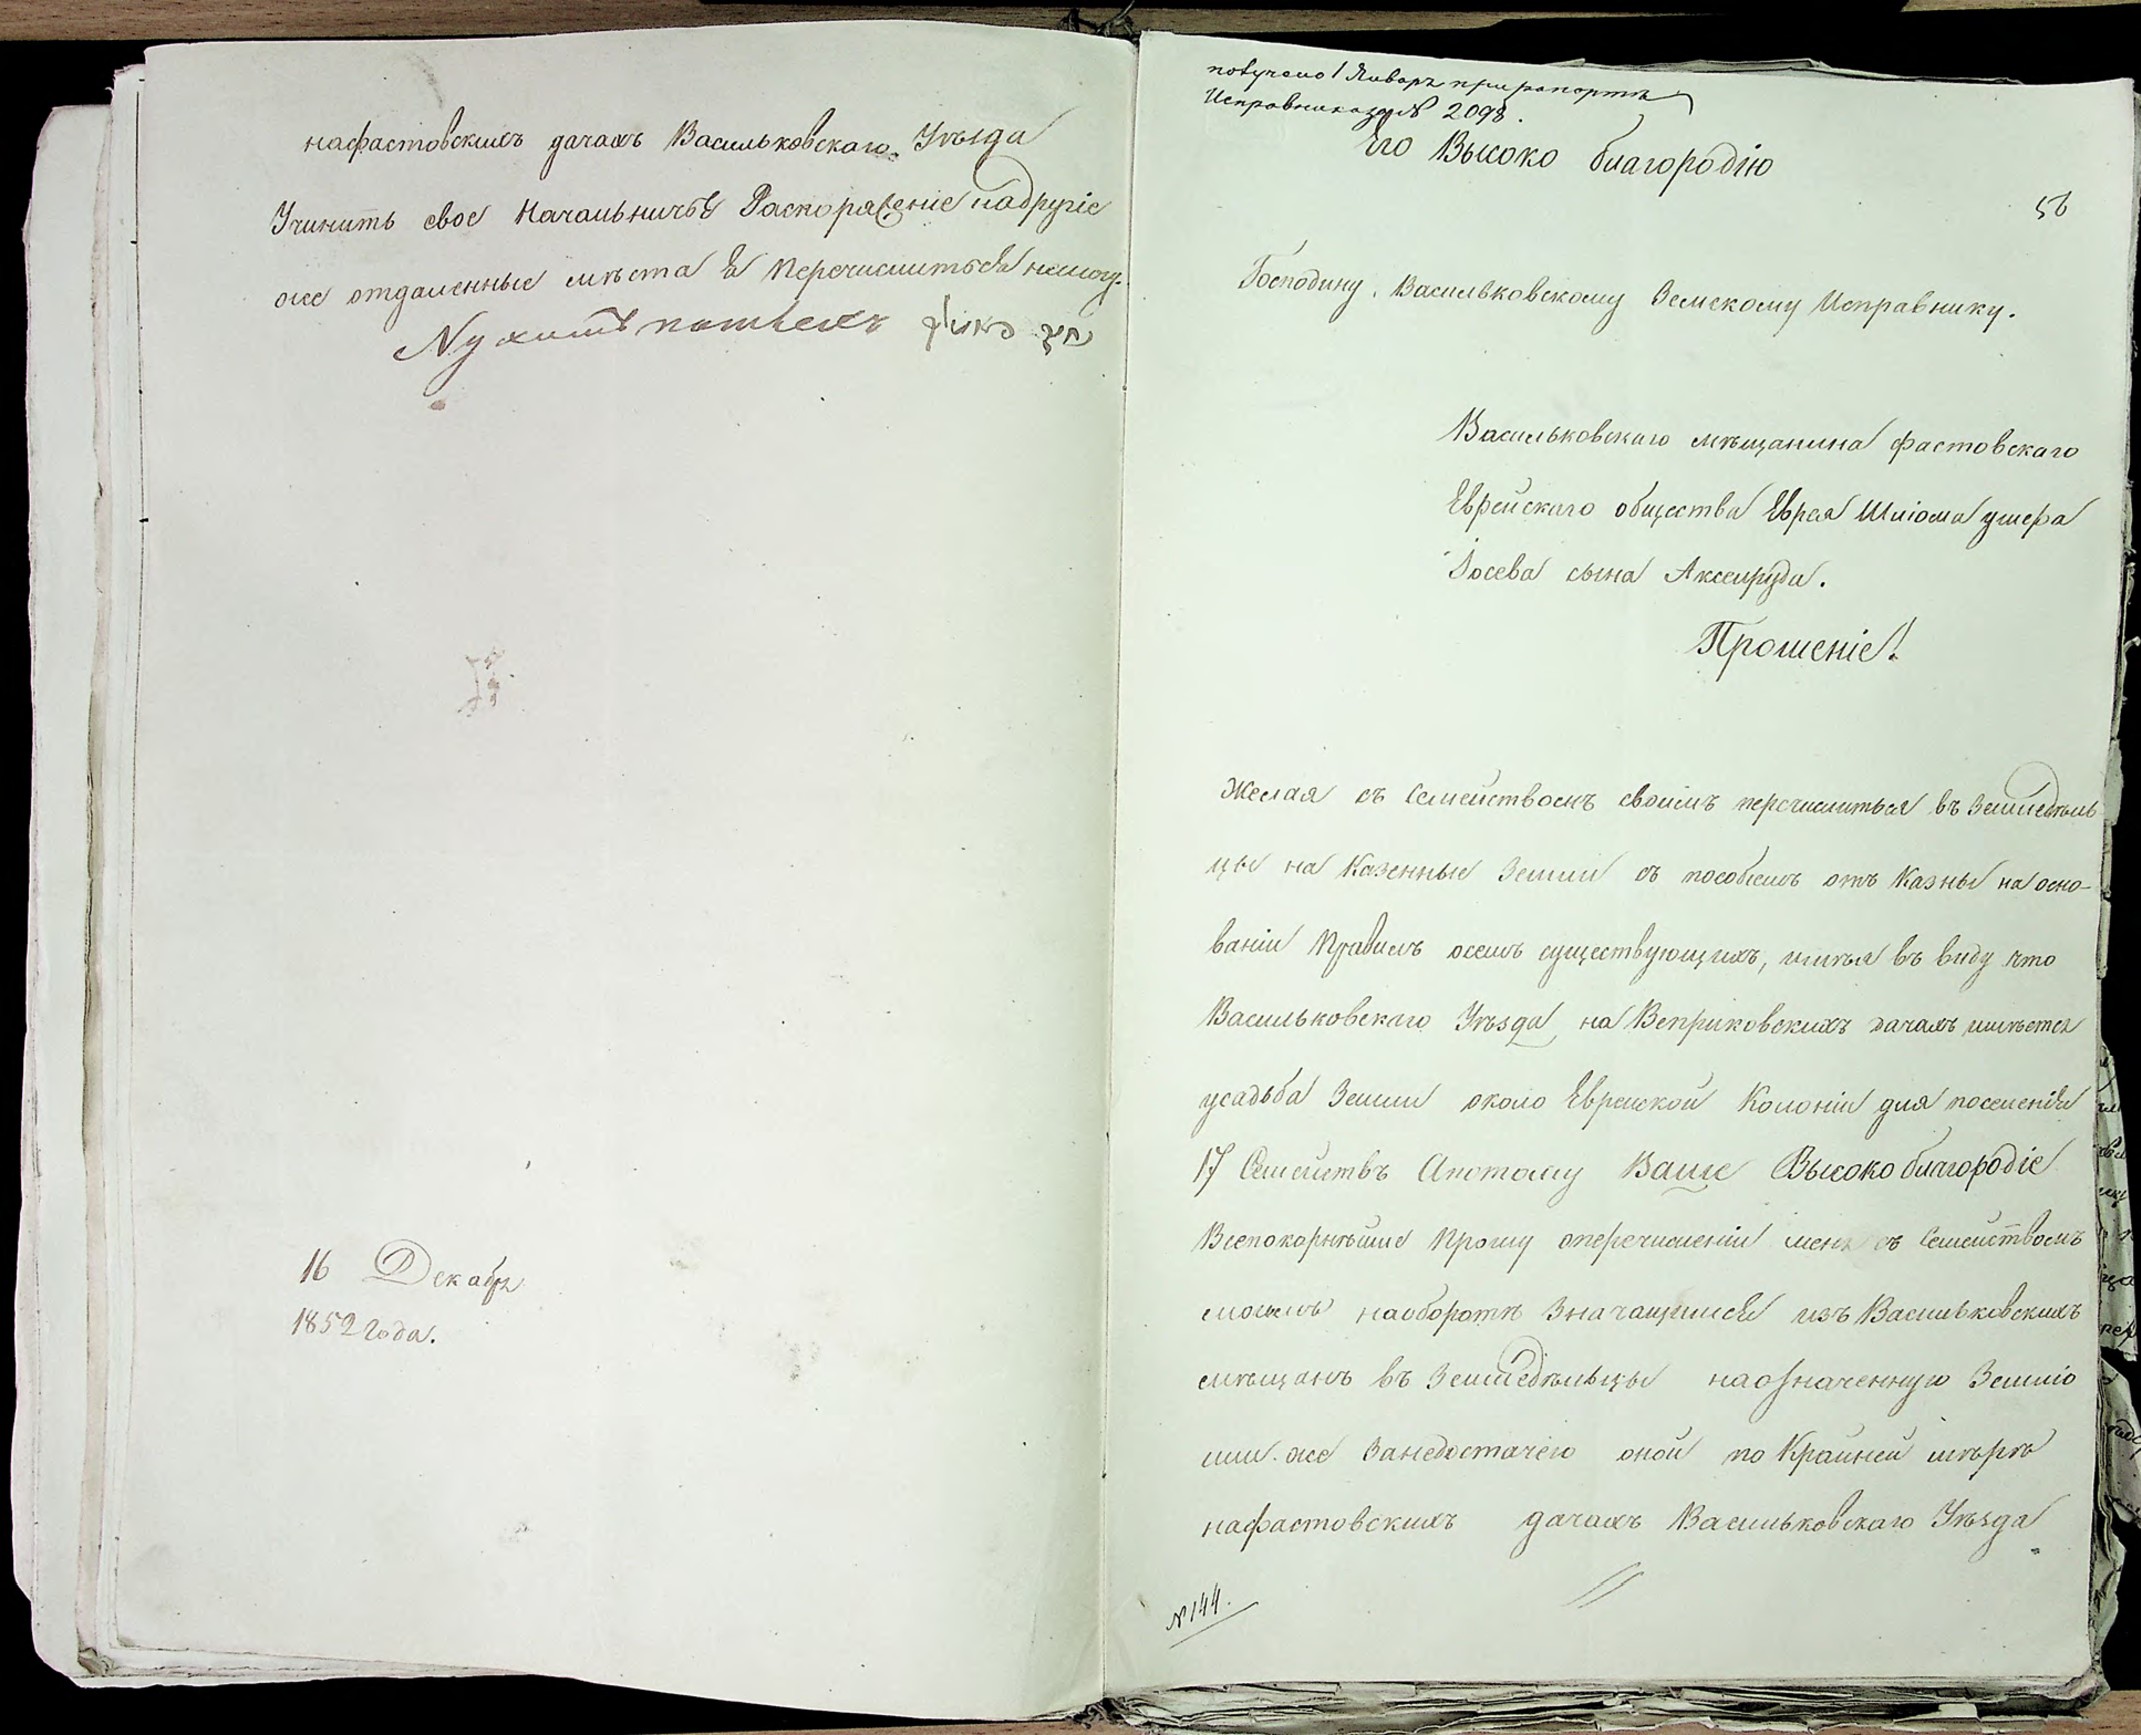 нафастовскихъ дачахъ Васильковскаго Уѣзда
Учинить свое Раскоражение надругіе
оже отдаленные мѣста Я перечислиться немогу.
16 Декабря
1852 года.
получено 1 Января при рапортѣ
Исправника за № 2098.
Его Высоко благородію
56
Господину Васильковскому Земскому Исправнику.
Васильковскаго мѣщанина фастовскаго
Еврейскаго общества Еврея Шліома ушера
Іосева сына Аксельруда.
Прошеніе!
Желая съ Семействомъ своимъ перечислиться въ Земледѣль
цы на Казенные Земли съ пособіемъ отъ Казны на осно-
ваніи Правилъ осемъ существующихъ, имѣя въ виду что
Васильковскаго Уѣзда на Веприковскихъ дачахъ имѣется
усадьба Земли около Еврейской Колоніи для поселенія
17 Семействъ Апотому Ваше Высоко благородіе
Всепокорнѣйше Прошу оперечисленіи меня съ Семействомъ
моимъ наоборотѣ Значащимся изъ Васильковскихъ
мѣщанъ въ Земледѣльцы наозначенную Землю
или же Занедостачею оной по Крайней мѣрѣ
нафастовскихъ дачахъ Васильковскаго Уѣзда
№ 144.